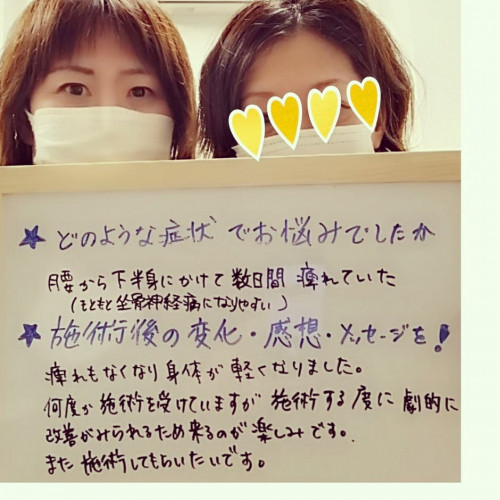 ★ どのような症状でお悩みでしたか
腰から下半身にかけて数日間 痺れていた
(もともと坐骨神経痛になりやすい)
★ 施術後の変化・感想・メッセージを!
痺れもなくなり身体が軽くなりました。
何度か施術を受けていますが 施術する度に劇的に
改善がみられるため来るのが楽しみです。
また施術してもらいたいです。